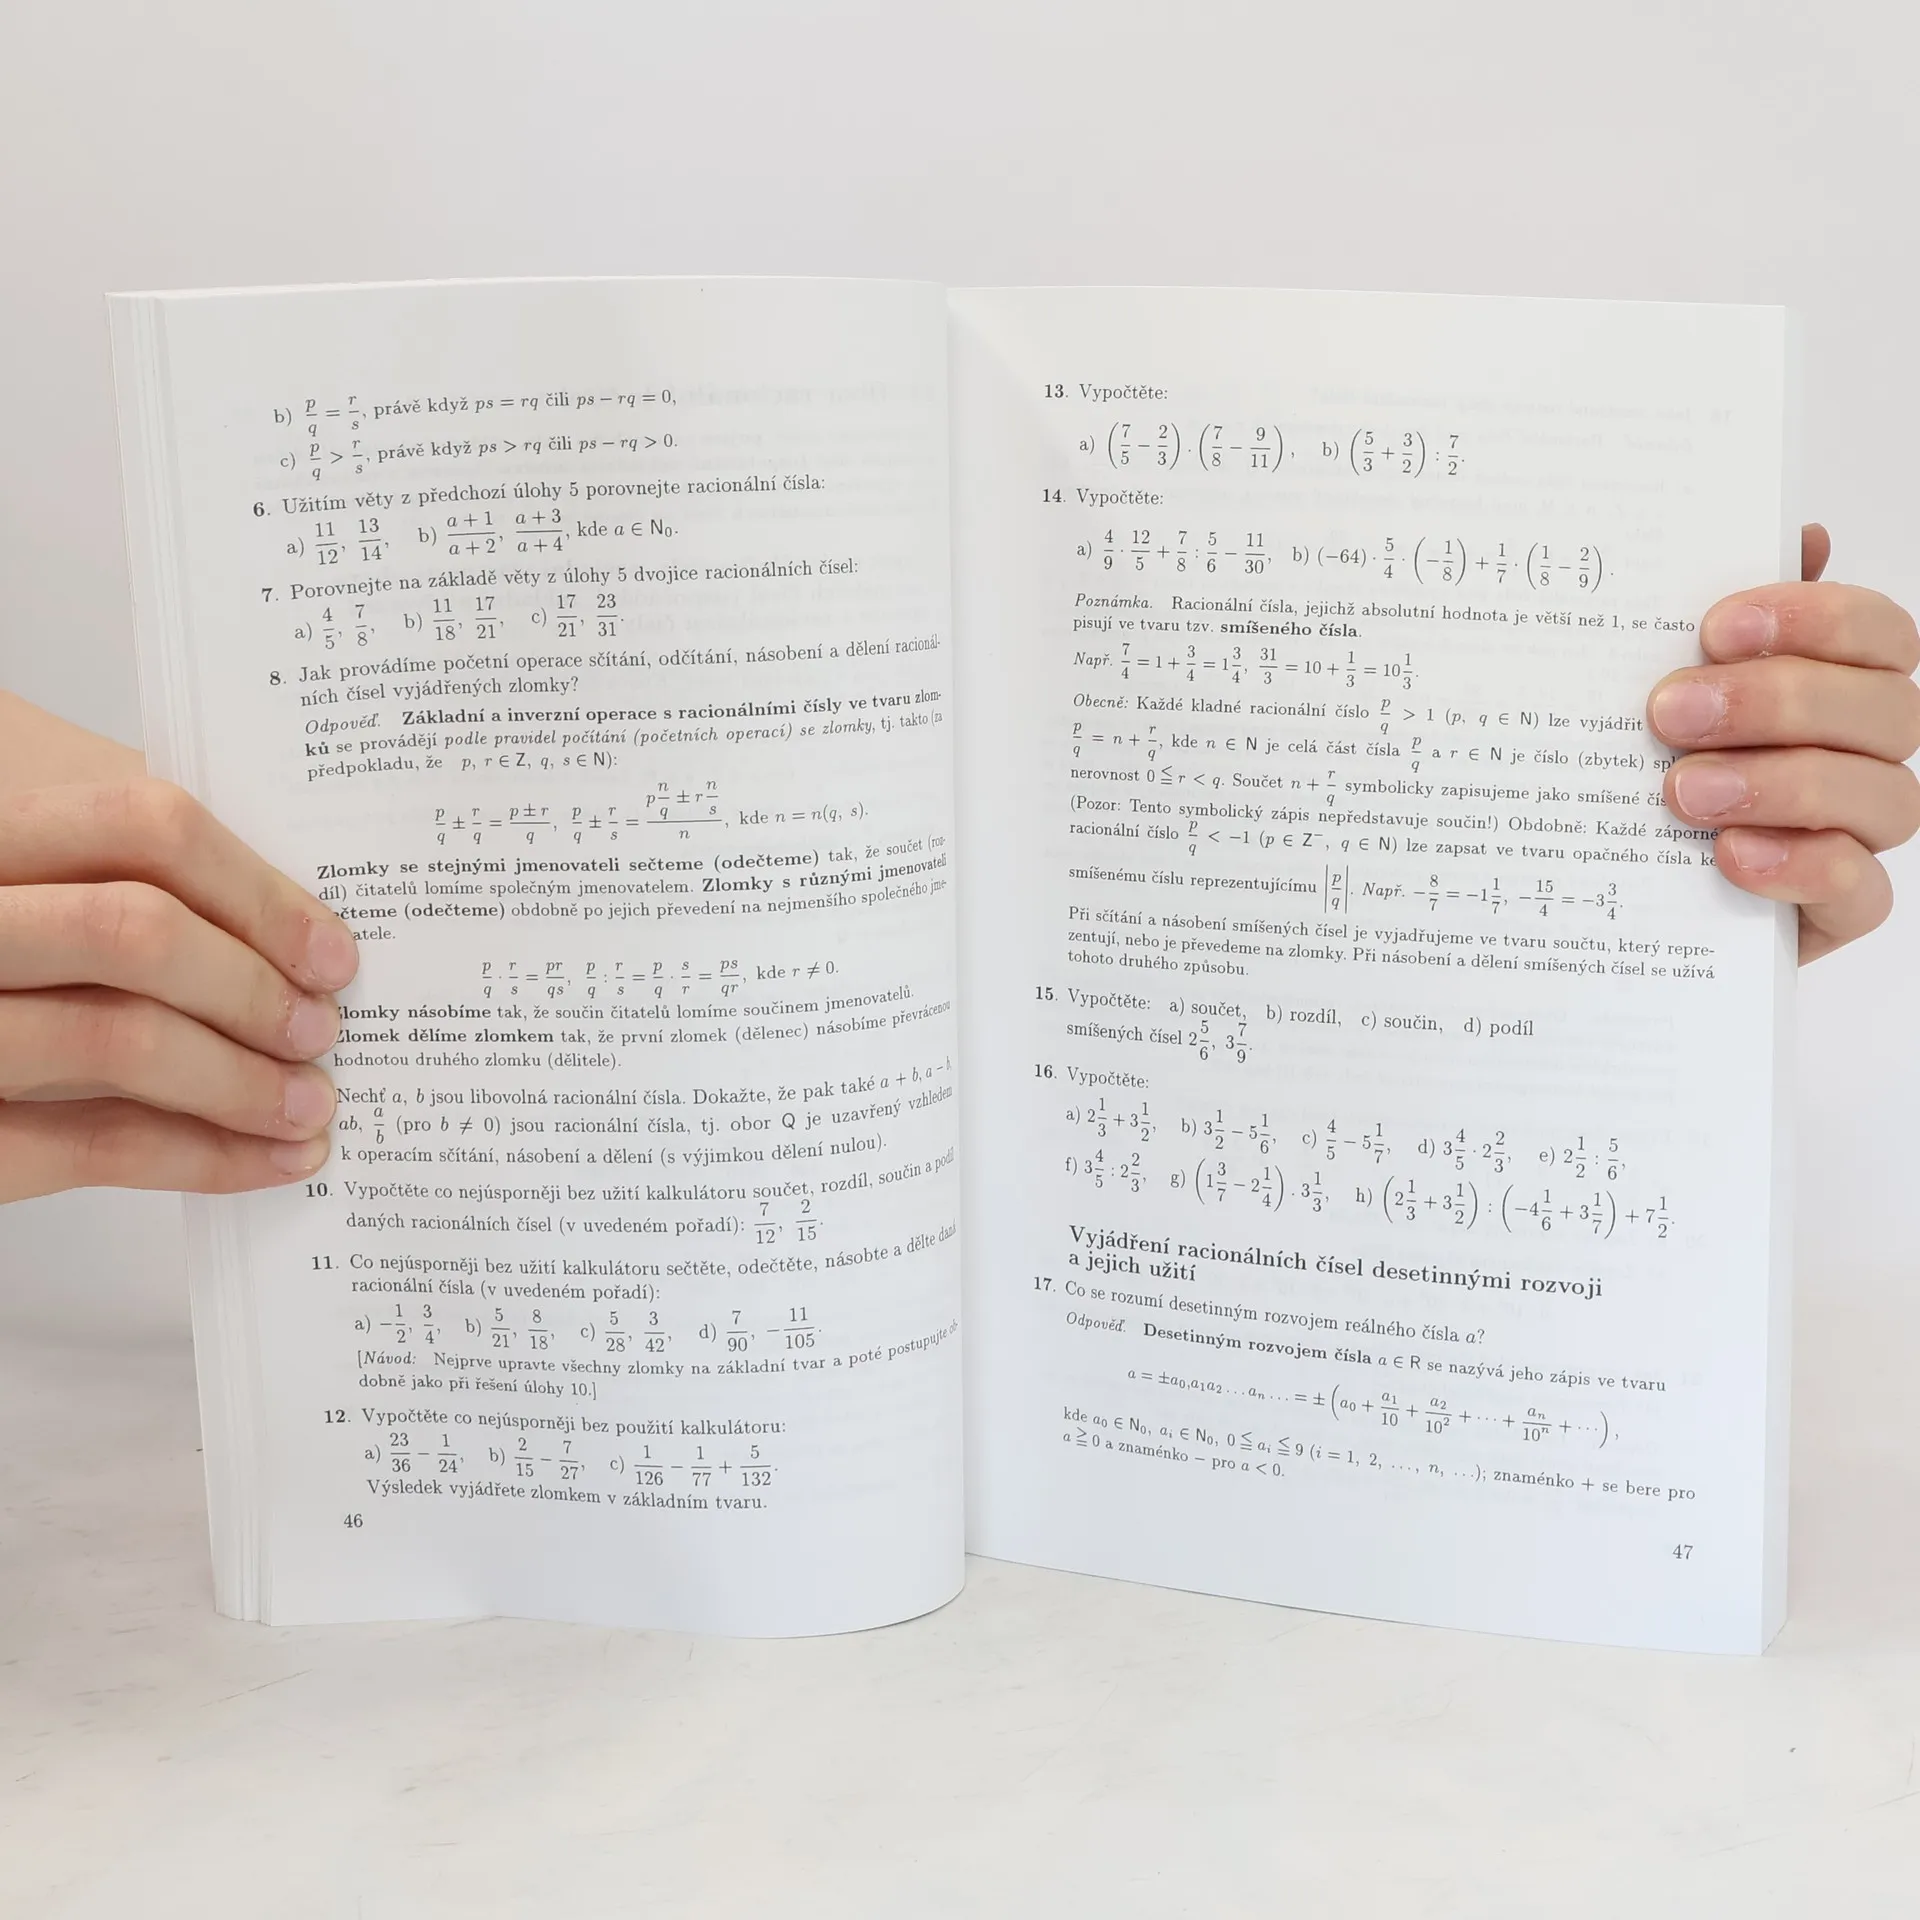 b) p/q = r/s, právě když ps = rq čili ps − rq = 0,
c) p/q > r/s, právě když ps > rq čili ps − rq > 0.
6. Užitím věty z předchozí úlohy 5 porovnejte racionální čísla:
a) 11/12, 13/14, b) (a + 1)/(a + 2), (a + 3)/(a + 4), kde a ∈ N₀.
7. Porovnejte na základě věty z úlohy 5 dvojice racionálních čísel:
a) 4/5, 7/8, b) 11/18, 17/21, c) 17/21, 23/31.
8. Jak provádíme početní operace sčítání, odčítání, násobení a dělení racionál-
ních čísel vyjádřených zlomky?
Odpověď. Základní a inverzní operace s racionálními čísly ve tvaru zlom-
ků se provádějí podle pravidel počítání (početních operací) se zlomky, tj. takto (za
předpokladu, že p, r ∈ Z, q, s ∈ N):
p/q ± r/q = (p ± r)/q, p/q ± r/s = (p n/q ± r n/s)/n, kde n = n(q, s).
Zlomky se stejnými jmenovateli sečteme (odečteme) tak, že součet (roz-
díl) čitatelů lomíme společným jmenovatelem. Zlomky s různými jmenovateli
čteme (odečteme) obdobně po jejich převedení na nejmenšího společného jme-
atele.
p/q · r/s = pr/qs, p/q : r/s = p/q · s/r = ps/qr, kde r ≠ 0.
Zlomky násobíme tak, že součin čitatelů lomíme součinem jmenovatelů.
Zlomek dělíme zlomkem tak, že první zlomek (dělenec) násobíme převrácenou
hodnotou druhého zlomku (dělitele).
Nechť a, b jsou libovolná racionální čísla. Dokažte, že pak také a + b, a − b,
ab, a/b (pro b ≠ 0) jsou racionální čísla, tj. obor Q je uzavřený vzhledem
k operacím sčítání, násobení a dělení (s výjimkou dělení nulou).
10. Vypočtěte co nejúsporněji bez užití kalkulátoru součet, rozdíl, součin a podíl
daných racionálních čísel (v uvedeném pořadí): 7/12, 2/15.
11. Co nejúsporněji bez užití kalkulátoru sečtěte, odečtěte, násobte a dělte daná
racionální čísla (v uvedeném pořadí):
a) −1/2, 3/4, b) 5/21, 8/18, c) 5/28, 3/42, d) 7/90, −11/105.
[Návod: Nejprve upravte všechny zlomky na základní tvar a poté postupujte ob-
dobně jako při řešení úlohy 10.]
12. Vypočtěte co nejúsporněji bez použití kalkulátoru:
a) 23/36 − 1/24, b) 2/15 − 7/27, c) 1/126 − 1/77 + 5/132.
Výsledek vyjádřete zlomkem v základním tvaru.
46
13. Vypočtěte:
a) (7/5 − 2/3) · (7/8 − 9/11), b) (5/3 + 3/2) : 7/2.
14. Vypočtěte:
a) 4/9 · 12/5 + 7/8 : 5/6 − 11/30, b) (−64) · 5/4 · (−1/8) + 1/7 · (1/8 − 2/9).
Poznámka. Racionální čísla, jejichž absolutní hodnota je větší než 1, se často
pisují ve tvaru tzv. smíšeného čísla.
Např. 7/4 = 1 + 3/4 = 1 3/4, 31/3 = 10 + 1/3 = 10 1/3.
Obecně: Každé kladné racionální číslo p/q > 1 (p, q ∈ N) lze vyjádřit
p/q = n + r/q, kde n ∈ N je celá část čísla p/q a r ∈ N je číslo (zbytek) spl
nerovnost 0 ≦ r < q. Součet n + r/q symbolicky zapisujeme jako smíšené čís
(Pozor: Tento symbolický zápis nepředstavuje součin!) Obdobně: Každé záporné
racionální číslo p/q < −1 (p ∈ Z⁻, q ∈ N) lze zapsat ve tvaru opačného čísla ke
smíšenému číslu reprezentujícímu |p/q|. Např. −8/7 = −1 1/7, −15/4 = −3 3/4.
Při sčítání a násobení smíšených čísel je vyjadřujeme ve tvaru součtu, který repre-
zentují, nebo je převedeme na zlomky. Při násobení a dělení smíšených čísel se užívá
tohoto druhého způsobu.
15. Vypočtěte: a) součet, b) rozdíl, c) součin, d) podíl
smíšených čísel 2 5/6, 3 7/9.
16. Vypočtěte:
a) 2 1/3 + 3 1/2, b) 3 1/2 − 5 1/6, c) 4/5 − 5 1/7, d) 3 4/5 · 2 2/3, e) 2 1/2 : 5/6,
f) 3 4/5 : 2 2/3, g) (1 3/7 − 2 1/4) . 3 1/3, h) (2 1/3 + 3 1/2) : (−4 1/6 + 3 1/7) + 7 1/2.
Vyjádření racionálních čísel desetinnými rozvoji
a jejich užití
17. Co se rozumí desetinným rozvojem reálného čísla a?
Odpověď. Desetinným rozvojem čísla a ∈ R se nazývá jeho zápis ve tvaru
a = ±a₀,a₁a₂ … aₙ … = ± (a₀ + a₁/10 + a₂/10² + ⋯ + aₙ/10ⁿ + ⋯),
kde a₀ ∈ N₀, aᵢ ∈ N₀, 0 ≦ aᵢ ≦ 9 (i = 1, 2, …, n, …); znaménko + se bere pro
a ≧ 0 a znaménko − pro a < 0.
47